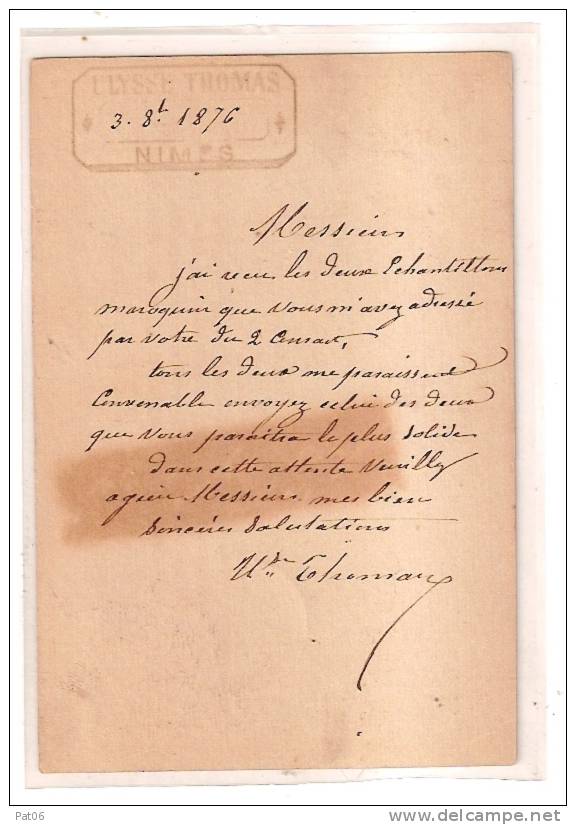 ULYSSE THOMAS
3. 8bt 1876
NIMES
Messieurs
j'ai recu les deux Echantillons
maroquin que vous m'avez adressé
par votre du 2 Courant,
tous les deux me paraissent
Convenable envoyez celui des deux
que vous paraitra le plus Solide
dans cette attente Veuillez
agréer Messieurs mes bien
Sincères Salutations
Thomas
Pat06
delcampe.net